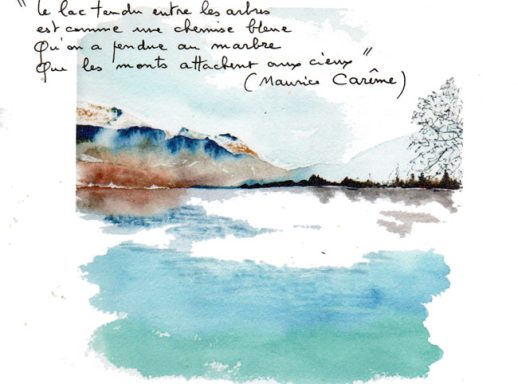 "le lac tendu entre les arbres
est comme une chemise bleue
Qu'on a pendue au marbre
Que les monts attachent aux cieux"
(Maurice Carême)